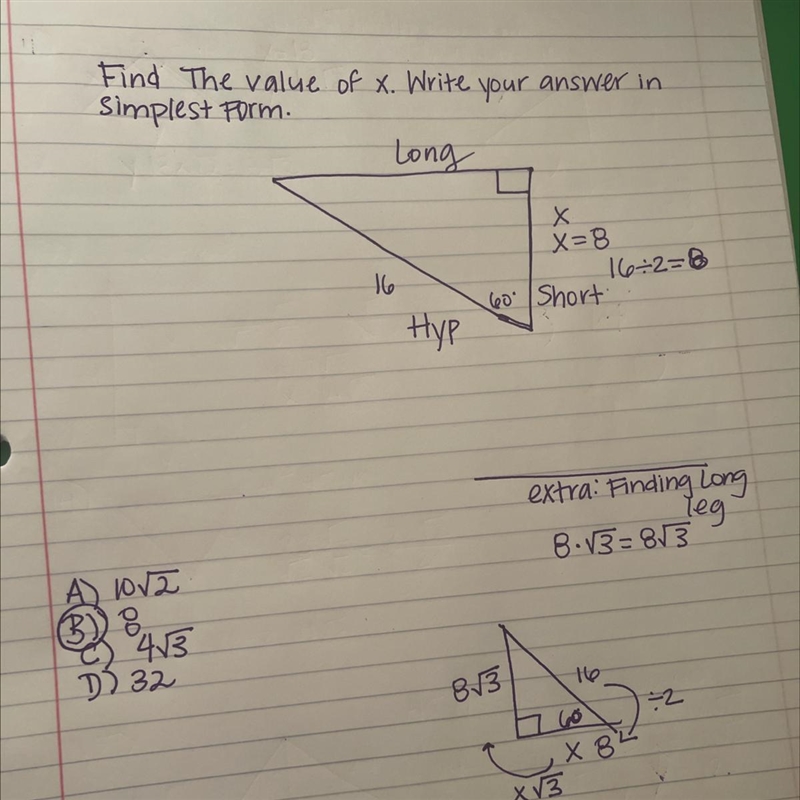 Find The value of x. Write your answer in
simplest Form.
Long
x
x=8
16÷2=8
16
60°
Short
Hyp
extra: Finding Long
leg
8·√3=8√3
A) 10√2
B) 8
C) 4√3
D) 32
8√3
16
÷2
60
x 8
x√3